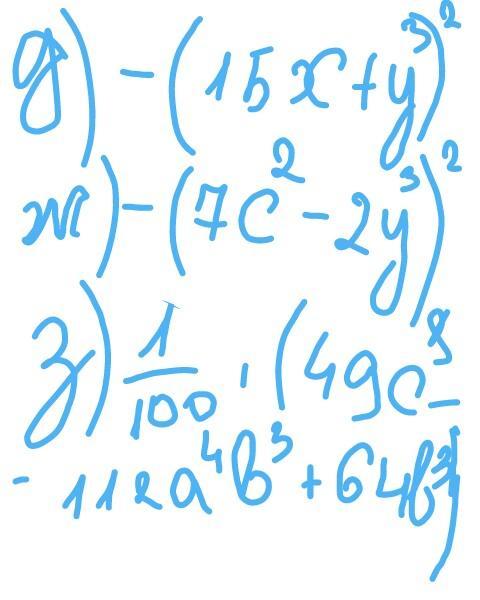 д) - (15x + y³)²
ж) - (7c² - 2y³)²
з) 1/100 · (49c⁸ -
- 112a⁴b³ + 64b²)